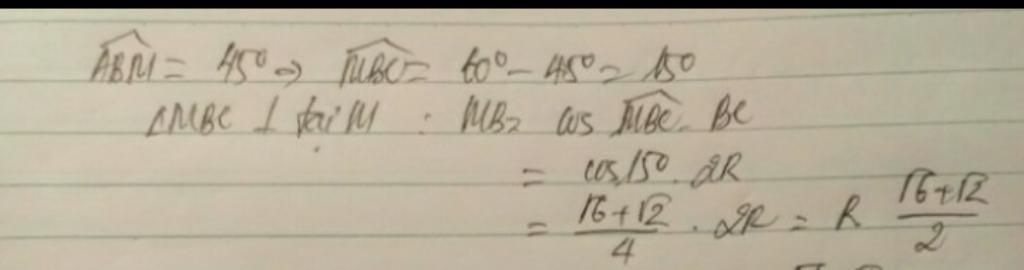 $\widehat{ABM} = 45^0 \Rightarrow \widehat{MBC} = 60^0 - 45^0 = 15^0$
$\Delta MBC \perp$ tại M : $MB = \cos \widehat{MBC} . BC$
$= \cos 15^0 . 2R$
$= \frac{\sqrt{6}+\sqrt{2}}{4} . 2R = R \frac{\sqrt{6}+\sqrt{2}}{2}$